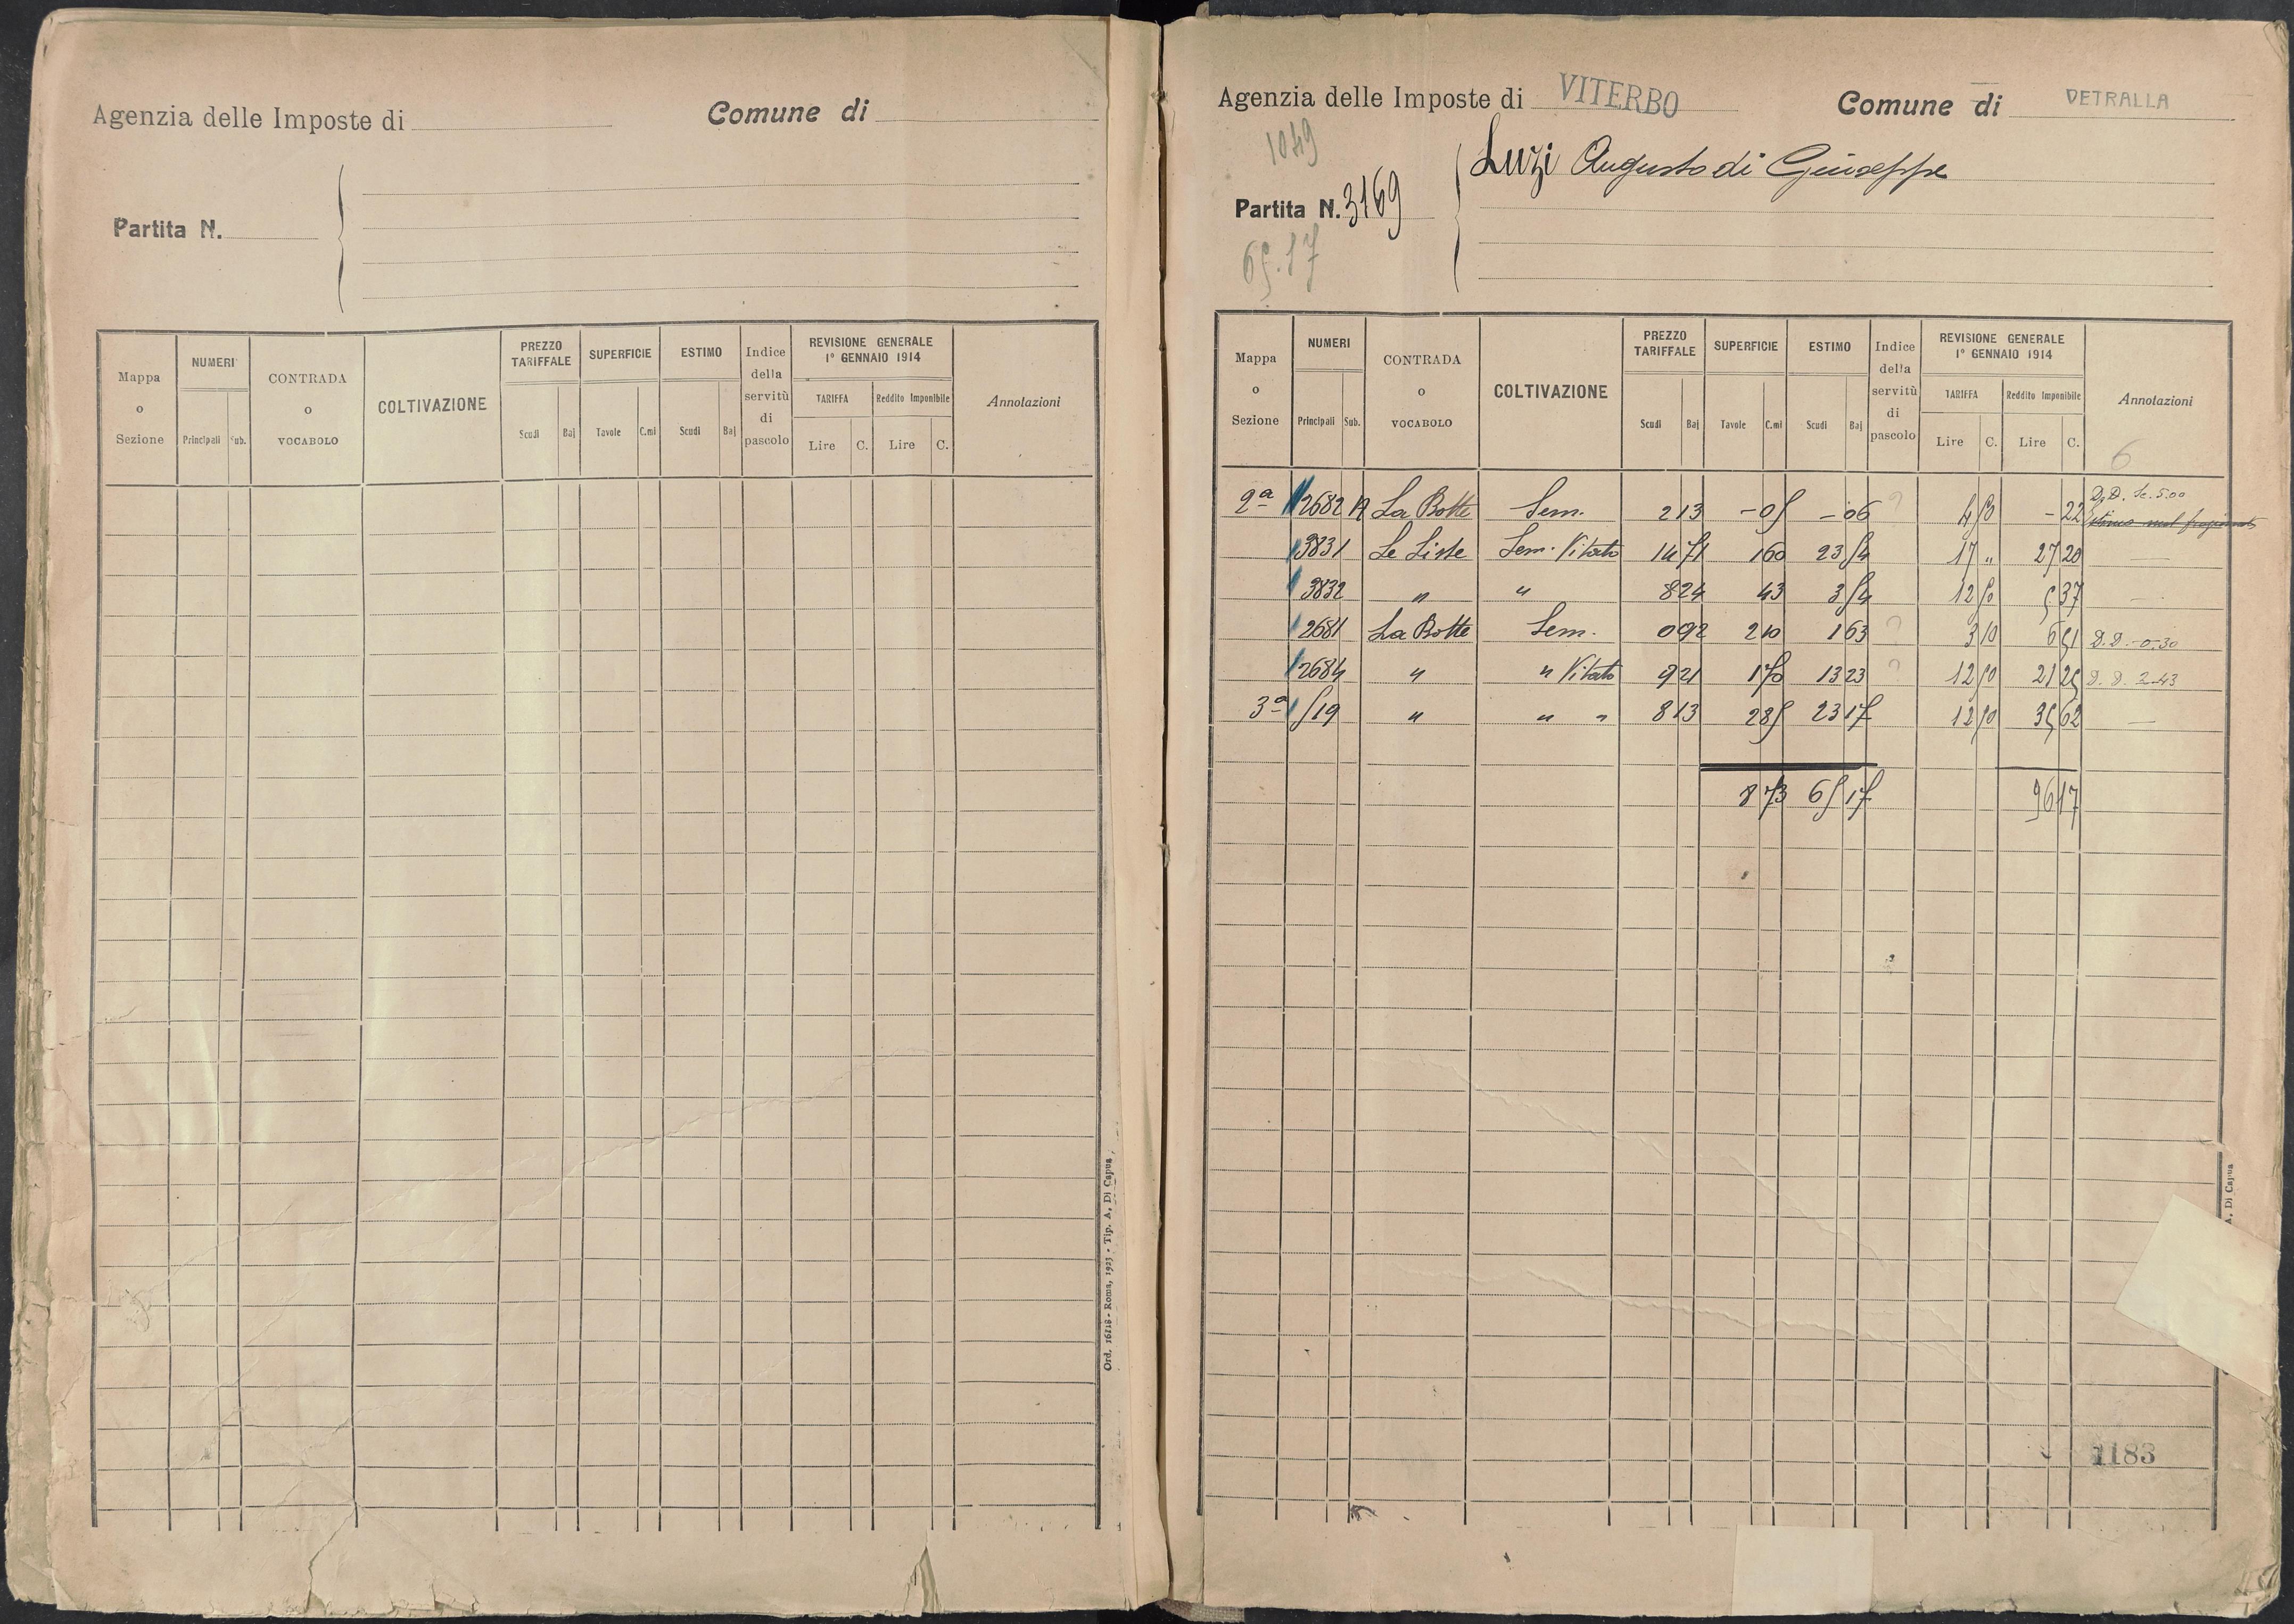 Agenzia delle Imposte di
Comune di
Partita N.
Mappa o Sezione
NUMERI
Principali Sub.
CONTRADA o VOCABOLO
COLTIVAZIONE
PREZZO TARIFFALE
Scudi Baj
SUPERFICIE
Tavole C.mi
ESTIMO
Scudi Baj
Indice della servitù di pascolo
REVISIONE GENERALE
1° GENNAIO 1914
TARIFFA
Lire C.
Reddito Imponibile
Lire C.
Annotazioni
Ord. 16118 - Roma, 1923 - Tip. A. Di Capua
Agenzia delle Imposte di VITERBO
Comune di VETRALLA
1049
Luzi Augusto di Giuseppe
Partita N. 3169
65.17
Mappa o Sezione
NUMERI
Principali Sub.
CONTRADA o VOCABOLO
COLTIVAZIONE
PREZZO TARIFFALE
Scudi Baj
SUPERFICIE
Tavole C.mi
ESTIMO
Scudi Baj
Indice della servitù di pascolo
REVISIONE GENERALE
1° GENNAIO 1914
TARIFFA
Lire C.
Reddito Imponibile
Lire C.
Annotazioni
6
2ª 2682 A La Botte Sem. 2 13 - 05 - 06 4 50 - 22 D.D. Sc. 5.00
3831 Le Liste Sem. Vitato 14 71 1 60 23 54 17 " 27 20 —
3832 " " 8 24 43 3 54 12 50 5 37 —
2681 La Botte Sem. 0 92 2 10 1 63 3 10 6 51 D.D. - 0.30
2684 " " Vitato 9 21 1 70 13 23 12 50 21 25 D.D. 2.43
3ª 519 " " " 8 13 2 85 23 17 12 50 35 62 —
8 73 65 17 96 17
A. Di Capua
1183